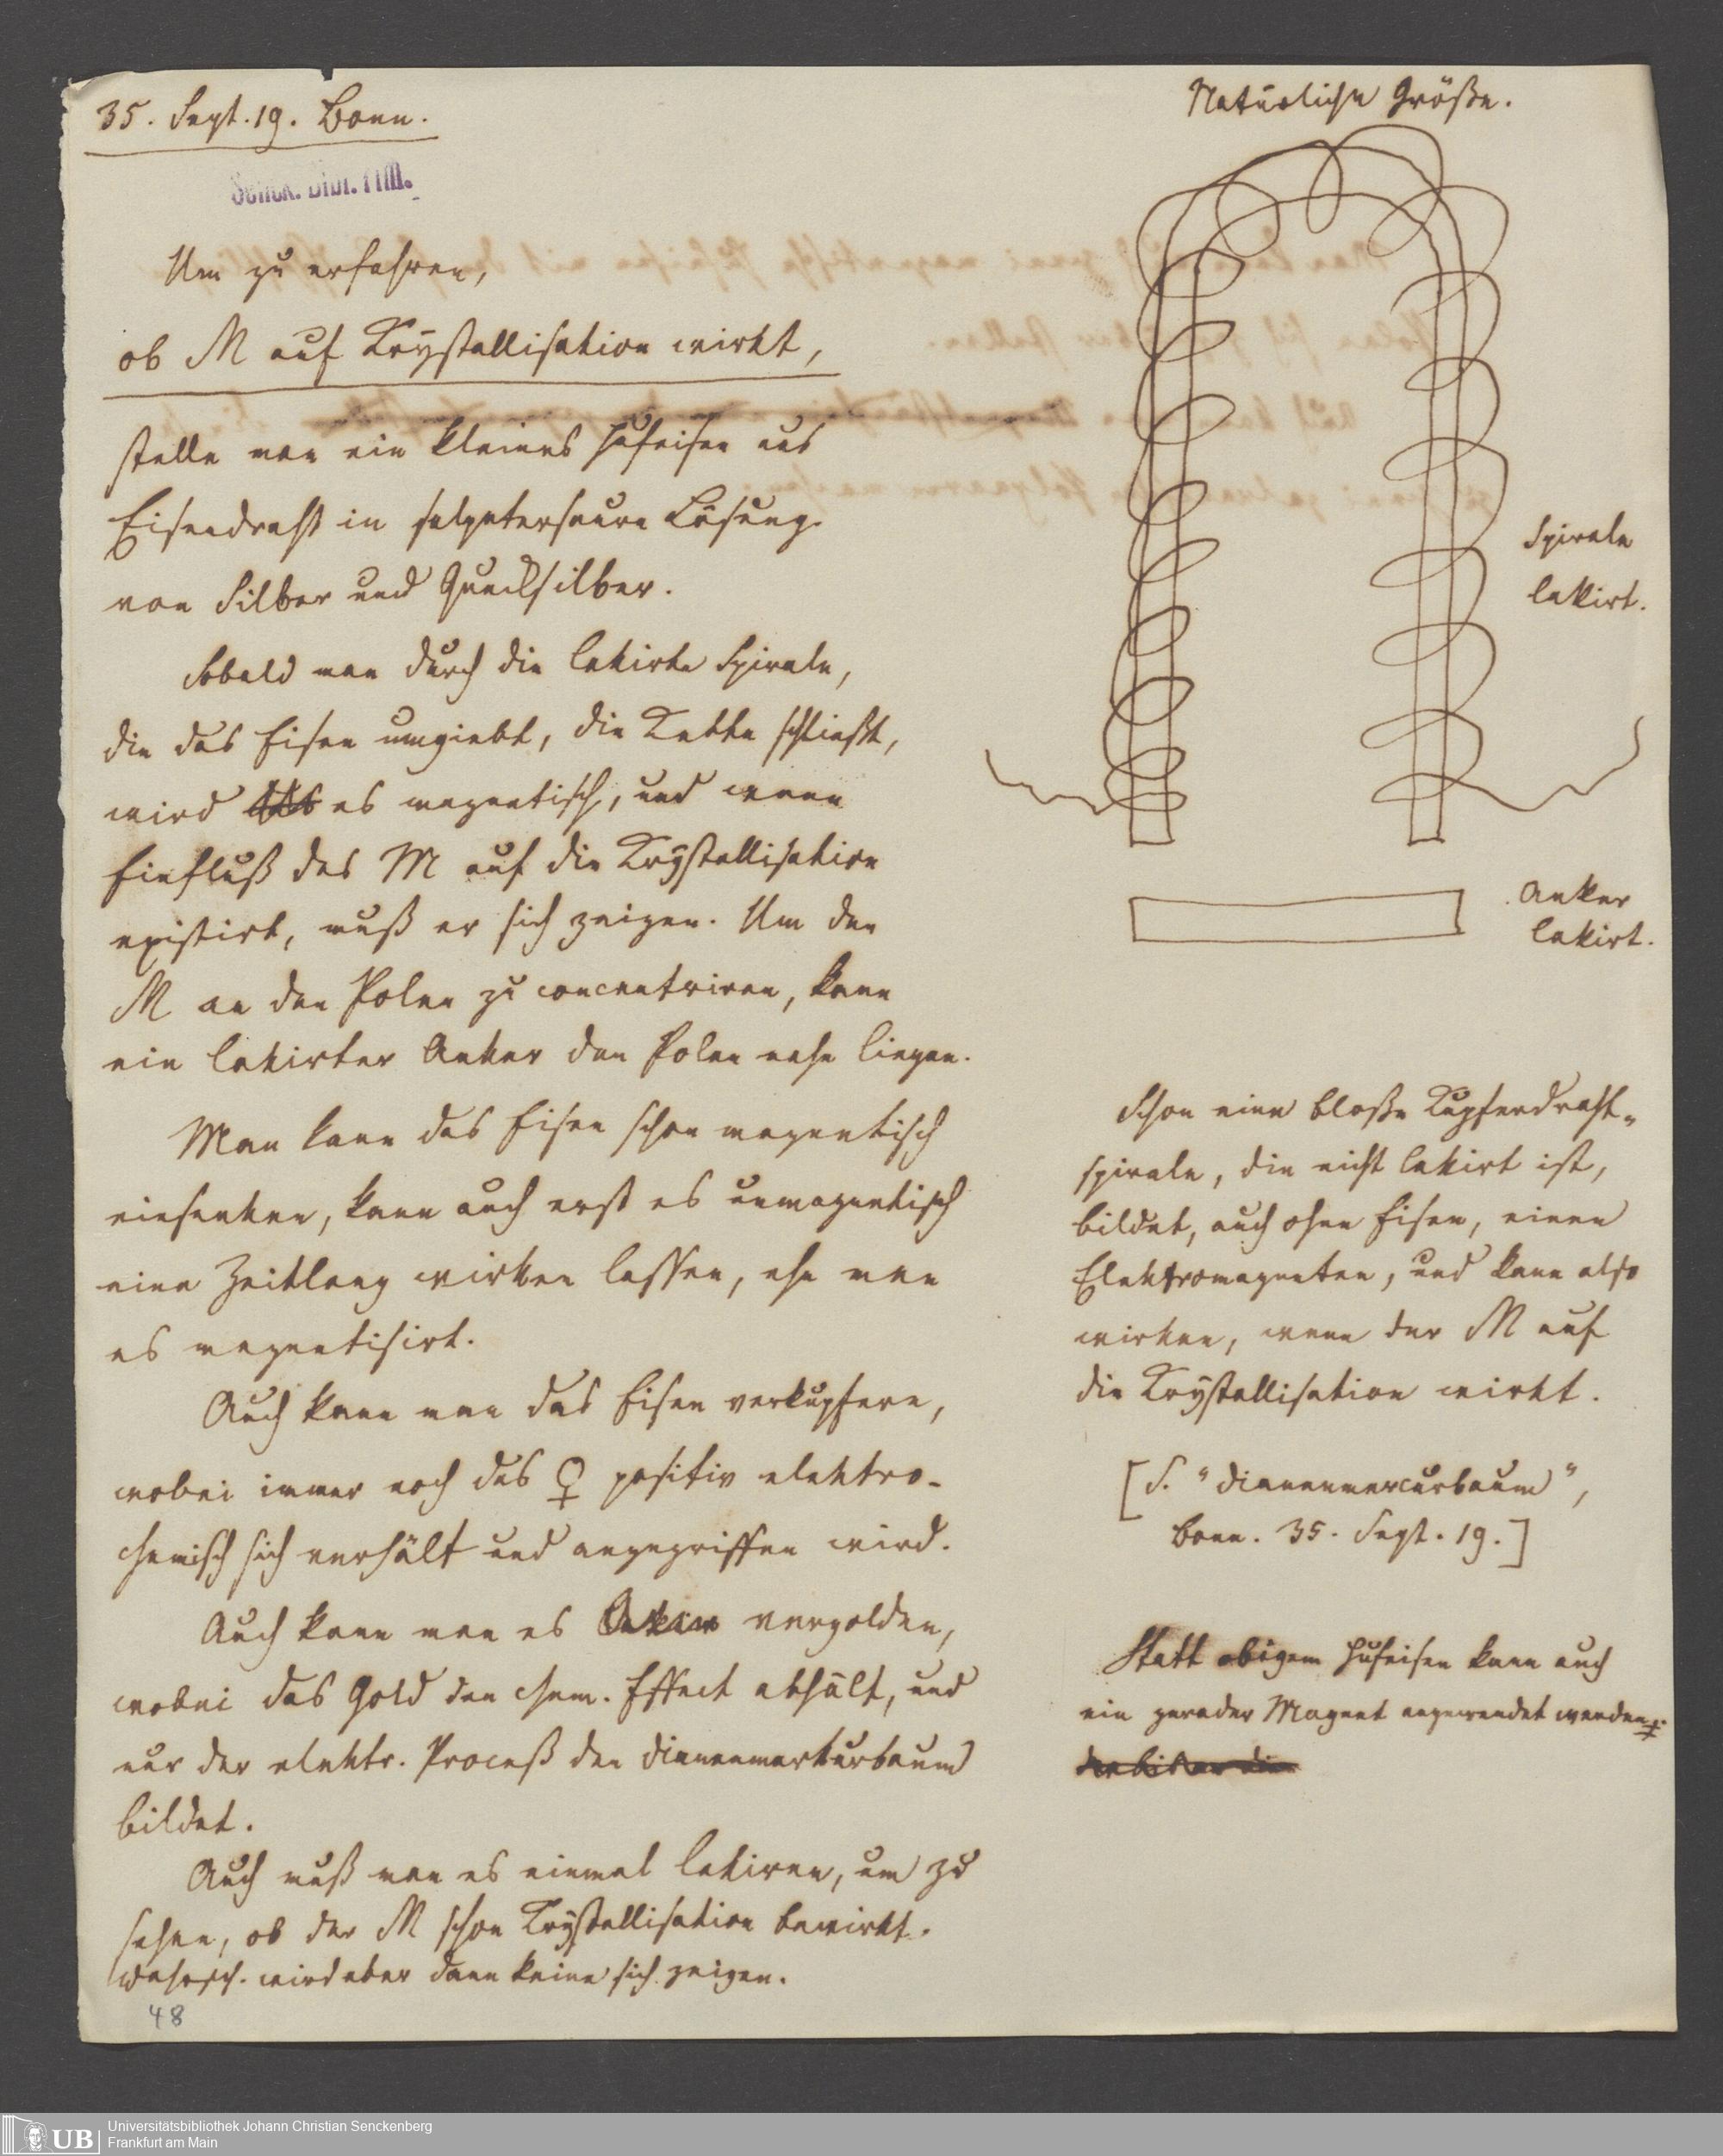 35. Sept. 19. Bonn.
Senck. Bibl. Ffm.
Um zu erfahren,
ob M auf Krystallisation wirkt,
stelle man ein kleines Hufeisen aus
Eisendraht in salpetersaure Lösung
von Silber und Quecksilber.
Sobald man durch die lakirte Spirale,
die das Eisen umgiebt, die Kette schließt,
wird es magnetisch, und wenn
Einfluß des M auf die Krystallisation
existirt, muß er sich zeigen. Um den
M an den Polen zu concentriren, kann
ein lakirter Anker den Polen nahe liegen.
Man kann das Eisen schon magnetisch
einsenken, kann auch erst es unmagnetisch
eine Zeitlang wirken lassen, ehe man
es magnetisirt.
Auch kann man das Eisen verkupfern,
wobei immer noch das ♀ positiv elektro-
chemisch sich verhält und angegriffen wird.
Auch kann man es vergolden,
wobei das Gold den chem. Effect abhält, und
nur der elektr. Proceß den Dianenmerkurbaum
bildet.
Auch muß man es einmal lakiren, um zu
sehen, ob der M schon Krystallisation bewirkt.
Wahrsch. wird aber dann keine sich zeigen.
48
Natürliche Größe.
Spirale
lakirt.
Anker
lakirt.
Schon eine bloße Kupferdraht-
spirale, die nicht lakirt ist,
bildet, auch ohne Eisen, einen
Elektromagneten, und kann also
wirken, wenn der M auf
die Krystallisation wirkt.
[S. "Dianenmercurbaum",
Bonn. 35. Sept. 19.]
Statt obigem Hufeisen kann auch
ein gerader Magnet angewendet werden.
UB Universitätsbibliothek Johann Christian Senckenberg
Frankfurt am Main